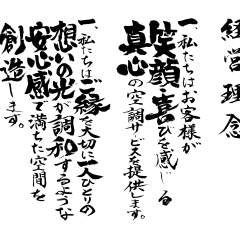 経営理念
一、私たちはお客様が
笑顔と喜びを感じる
真心の空調サービスを提供します。
一、私たちはご縁を大切に一人ひとりの
想いの光が調和するような
安心感で満ちた空間を
創造します。